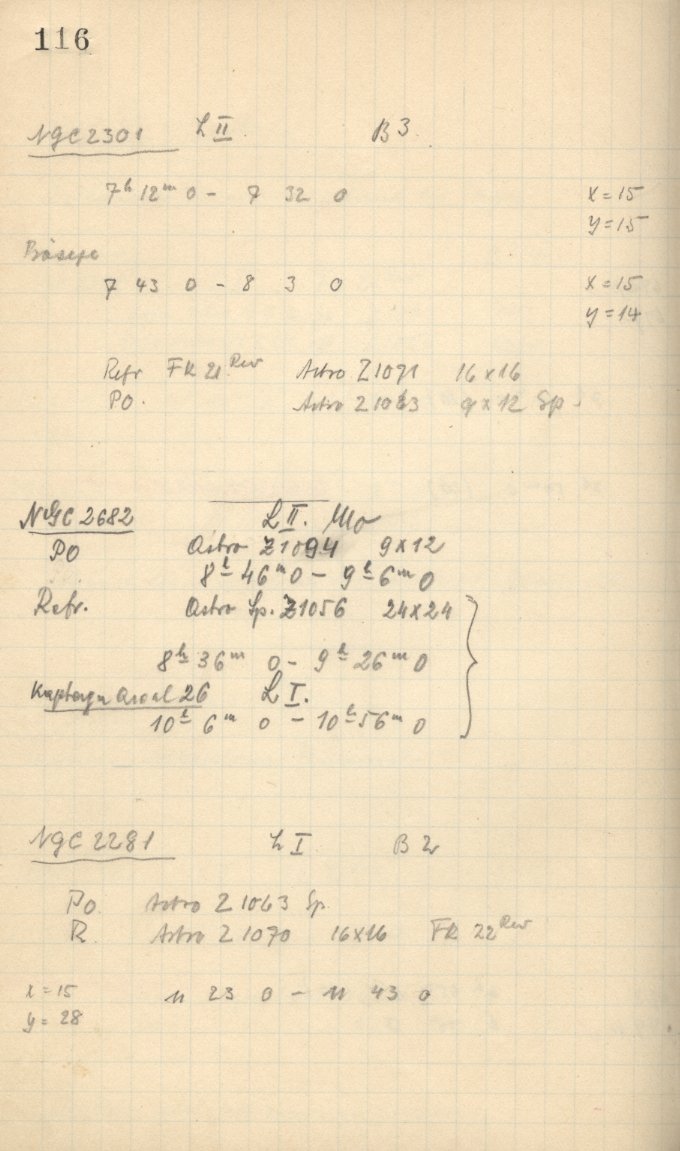 116
NGC 2301 L II B 3.
7h 12m 0 - 7 32 0 x = 15
y = 15
7 43 0 - 8 3 0 x = 15
y = 14
Refr FK 21 Rev Astro Z 1071 16 x 16
PO. Astro Z 1063 9 x 12 Sp.
NGC 2682 L II.
PO Astro Z1094 9 x 12
8h 46m 0 - 9h 6m 0
Refr. Astro Sp. Z1056 24 x 24
8h 36m 0 - 9h 26m 0
26 L I.
10h 6m 0 - 10h 56m 0
NGC 2281 L I B 2
Po. Astro Z 1063 Sp.
R. Astro Z 1070 16x16 FK 22 Rev
x = 15 11 23 0 - 11 43 0
y = 28